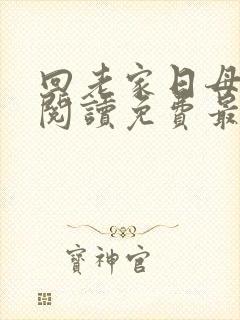 回老家日母
閱讀免費最
寶神官